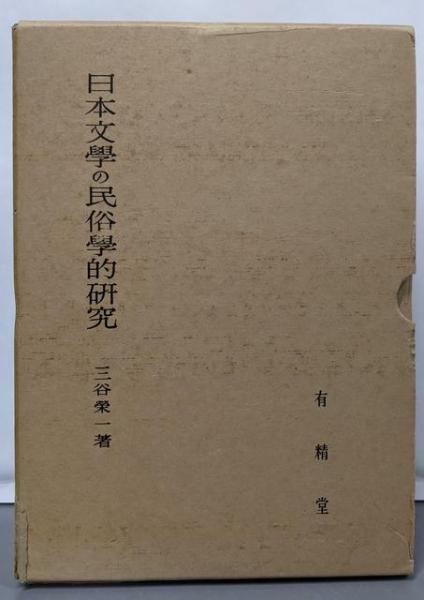 日本文學の民俗學的研究
三谷榮一著
有精堂